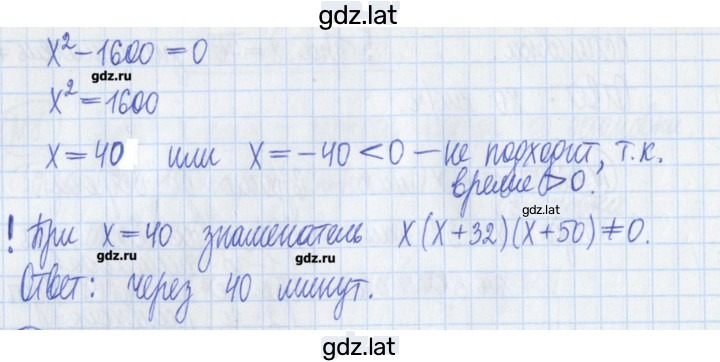 gdz.lat
x² − 1600 = 0
gdz.lat
x² = 1600
x = 40 или x = −40 < 0 — не подходит, т.к.
время > 0.
gdz.lat
! При x = 40 знаменатель x(x+32)(x+50) ≠ 0.
gdz.lat gdz.lat
Ответ: через 40 минут.
gdz.lat